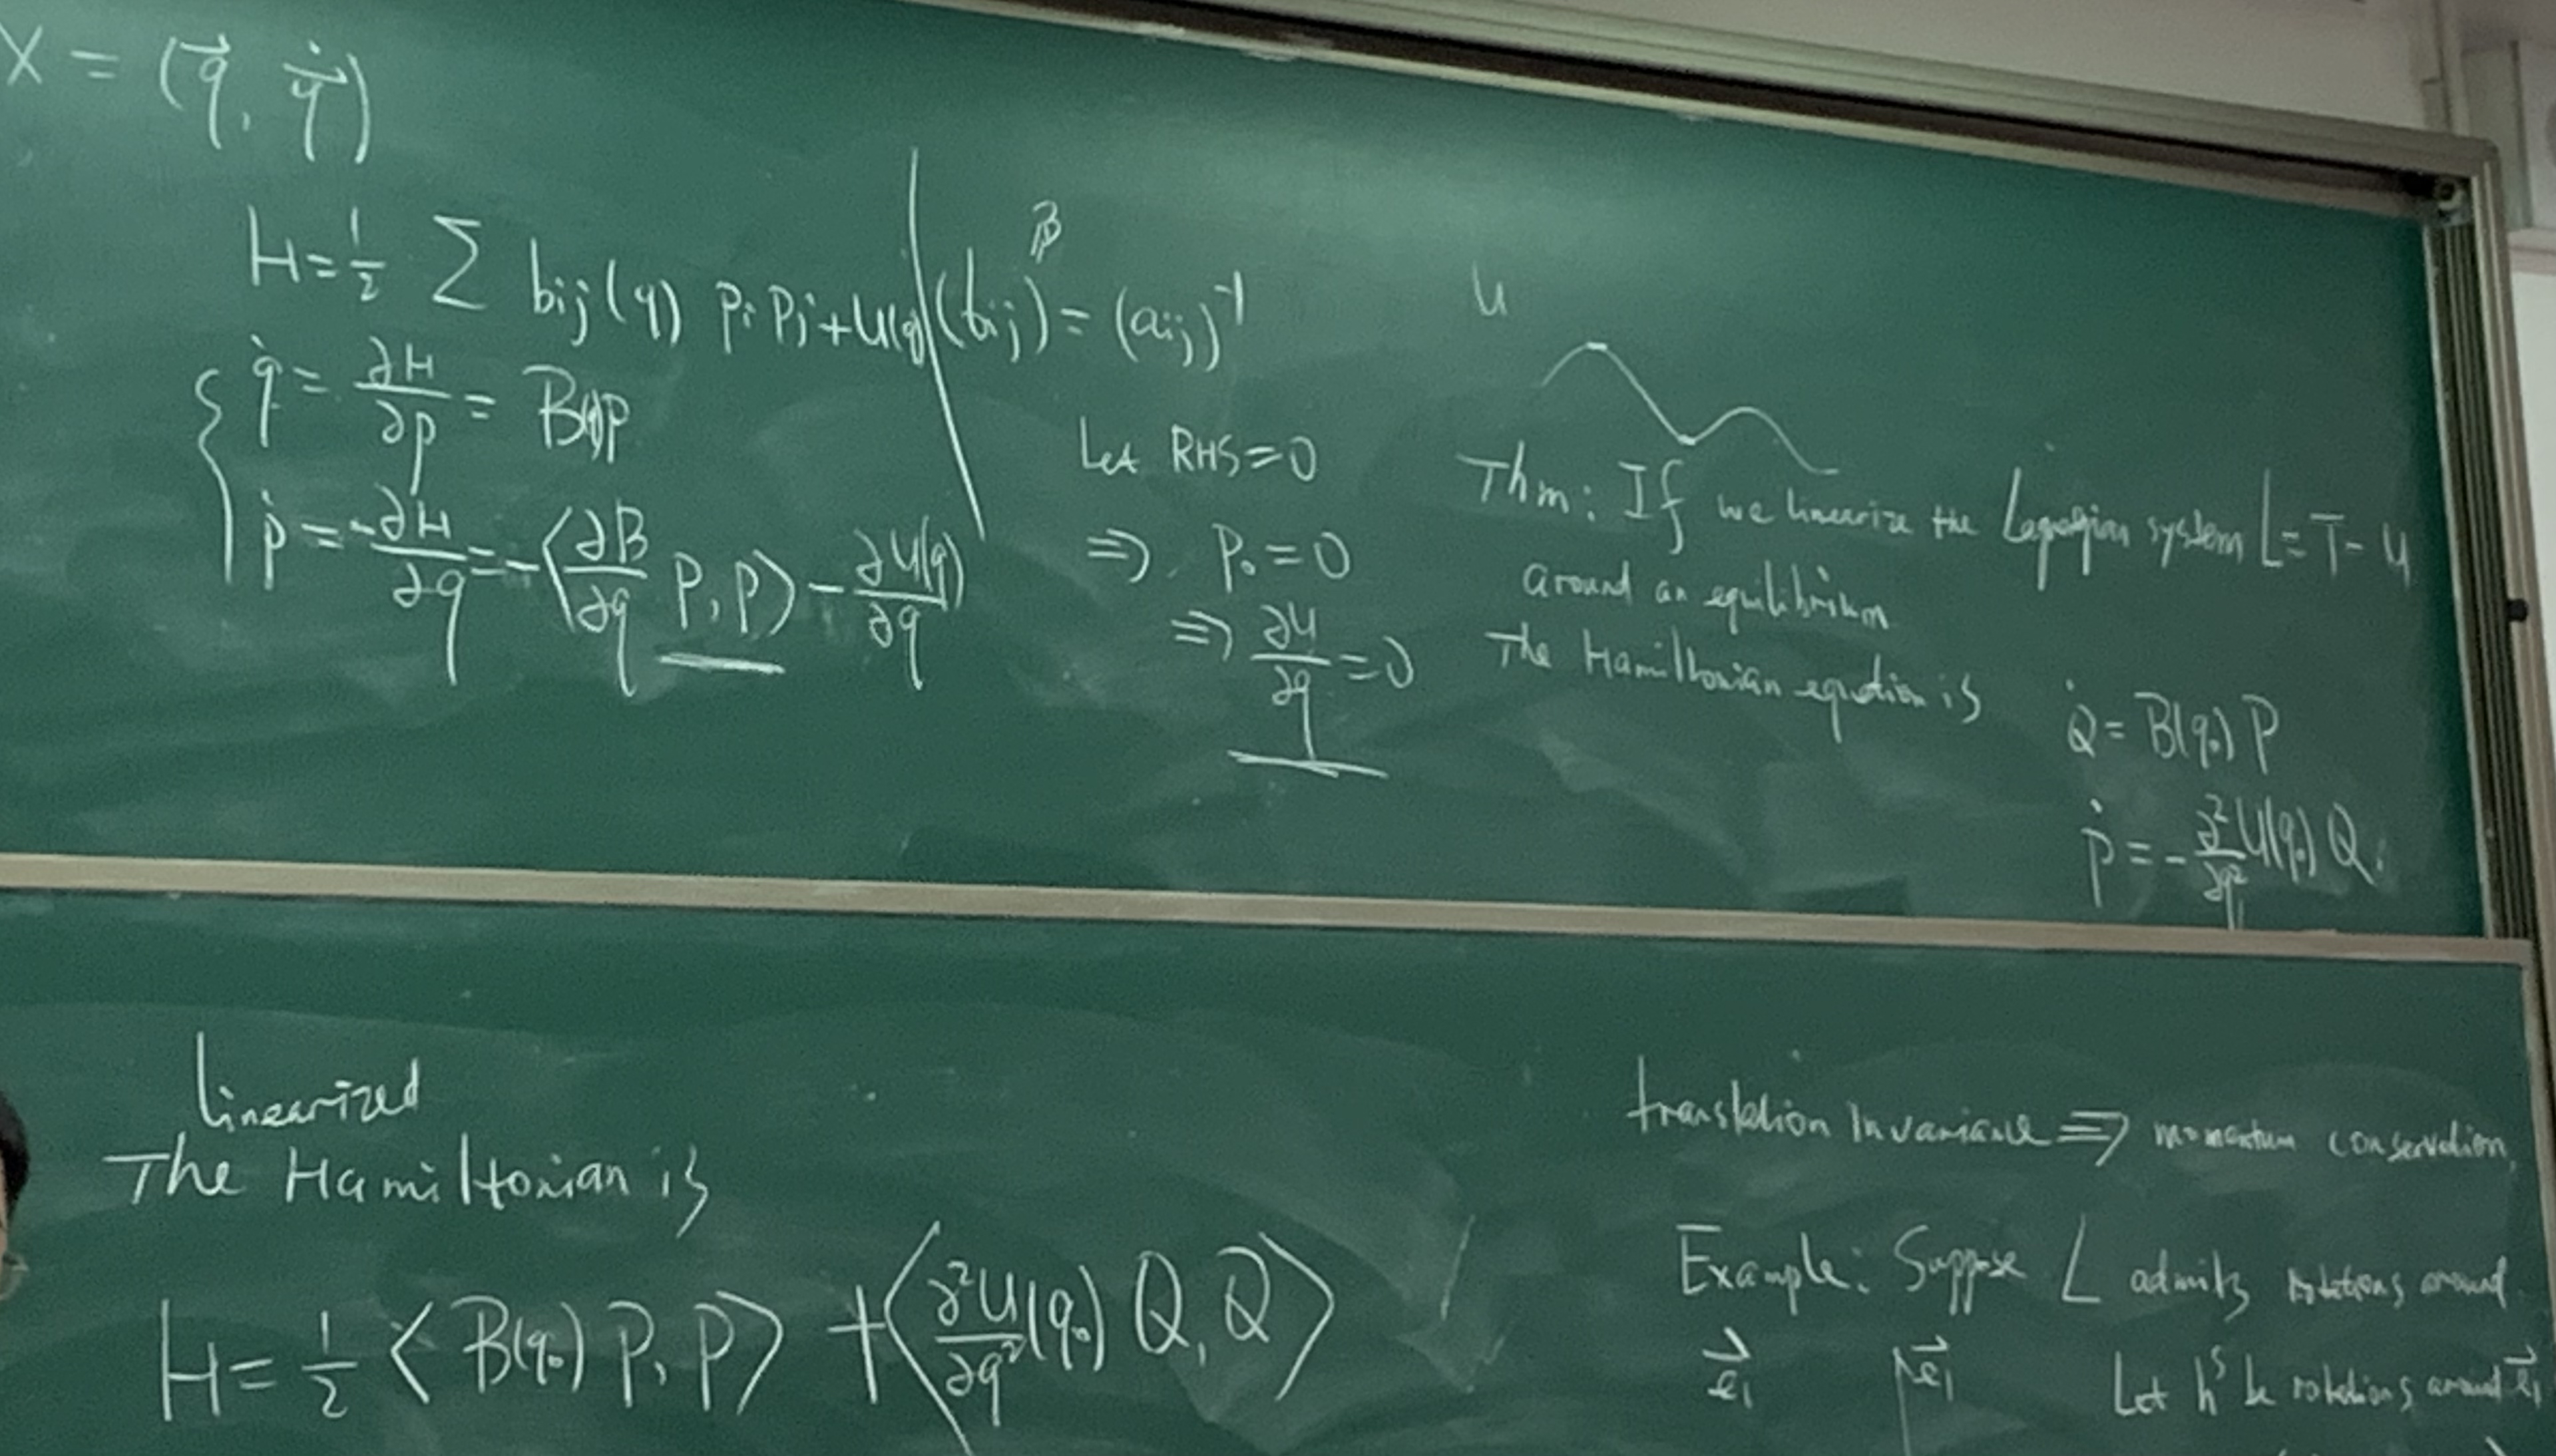 X = (q⃗, q⃗̇)
H = 1/2 Σ bij(q) Pi Pj + U(q)
B
(bij) = (aij)⁻¹
{ q̇ = ∂H/∂p = B(q)p
ṗ = -∂H/∂q = -⟨∂B/∂q P, P⟩ - ∂U(q)/∂q
Let RHS = 0
⇒ P₀ = 0
⇒ ∂U/∂q = 0
U
Thm: If we linearize the Lagrangian system L = T - U
around an equilibrium
The Hamiltonian equation is
Q̇ = B(q₀) P
Ṗ = -∂²/∂q² U(q₀) Q.
linearized
The Hamiltonian is
H = 1/2 ⟨B(q₀) P, P⟩ + ⟨∂²U/∂q² (q₀) Q, Q⟩
translation invariance ⇒ momentum conservation,
Example: Suppose L admits rotations around
e⃗₁
e⃗₁
Let hˢ be rotations around e⃗₁